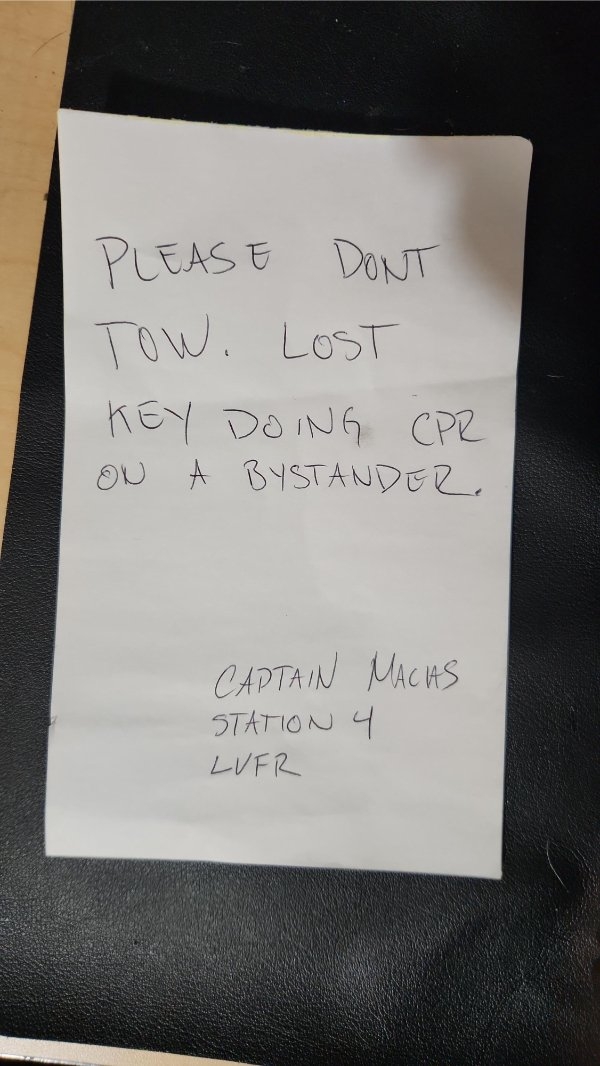 PLEASE DONT
TOW. LOST
KEY DOING CPR
ON A BYSTANDER.
CAPTAIN MACIAS
STATION 4
LVFR